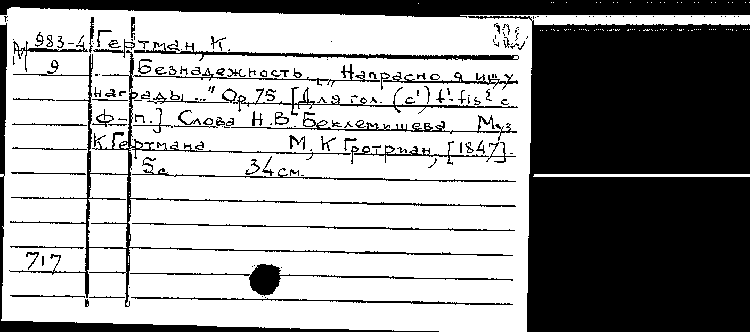 М 983-4 Гертман, К.
9 Безнадежность. „Напрасно я ищу
награды..." Ор. 75. [Для гол. (c¹) f¹-fis² с
ф-п.] Слова Н.В. Беклемишева. Муз.
К. Гертмана. М., К. Гротриан, [1847]
5с. 34 см.
717